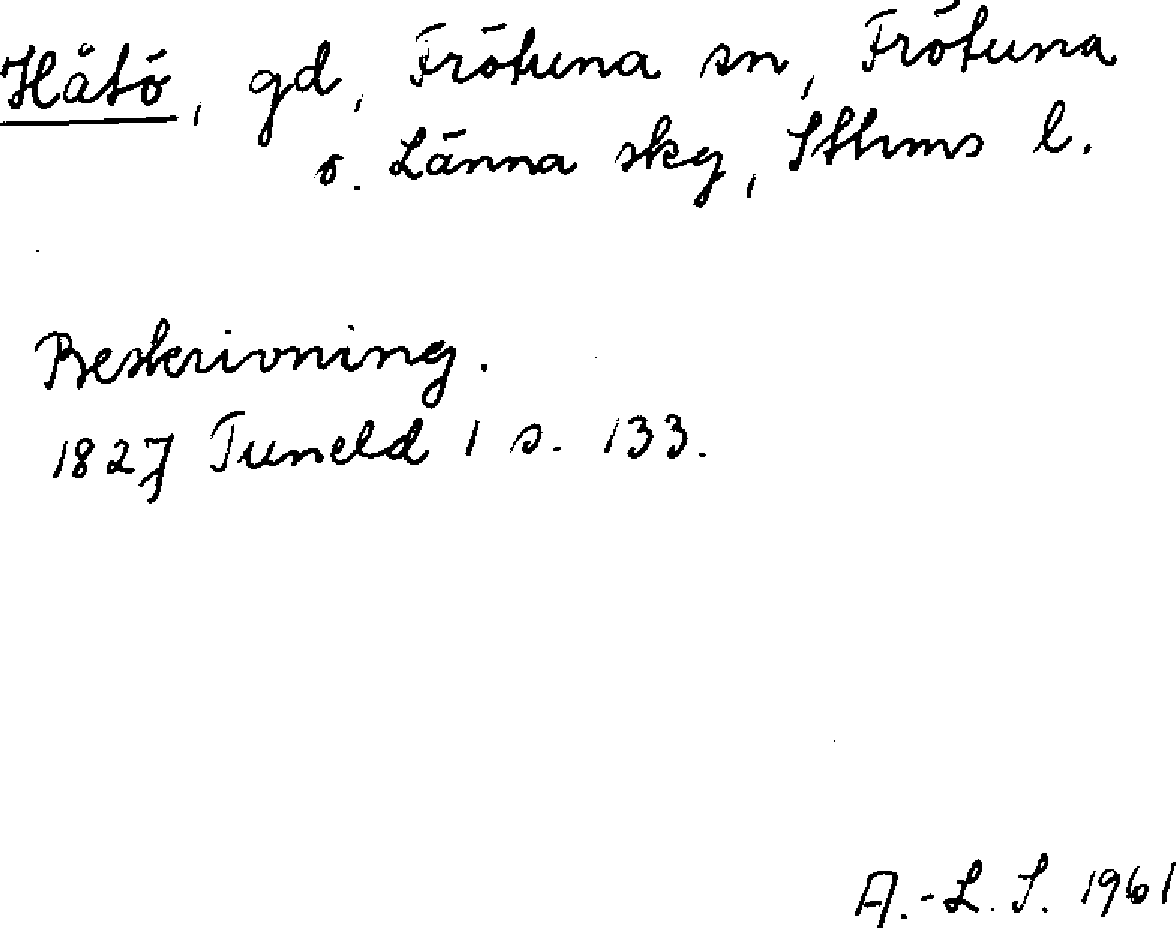 Håtö, gd, Frötuna sn, Frötuna
o. Länna skg, Sthms l.
Beskrivning.
1827 Tuneld 1 s. 133.
A.-L. S. 1961